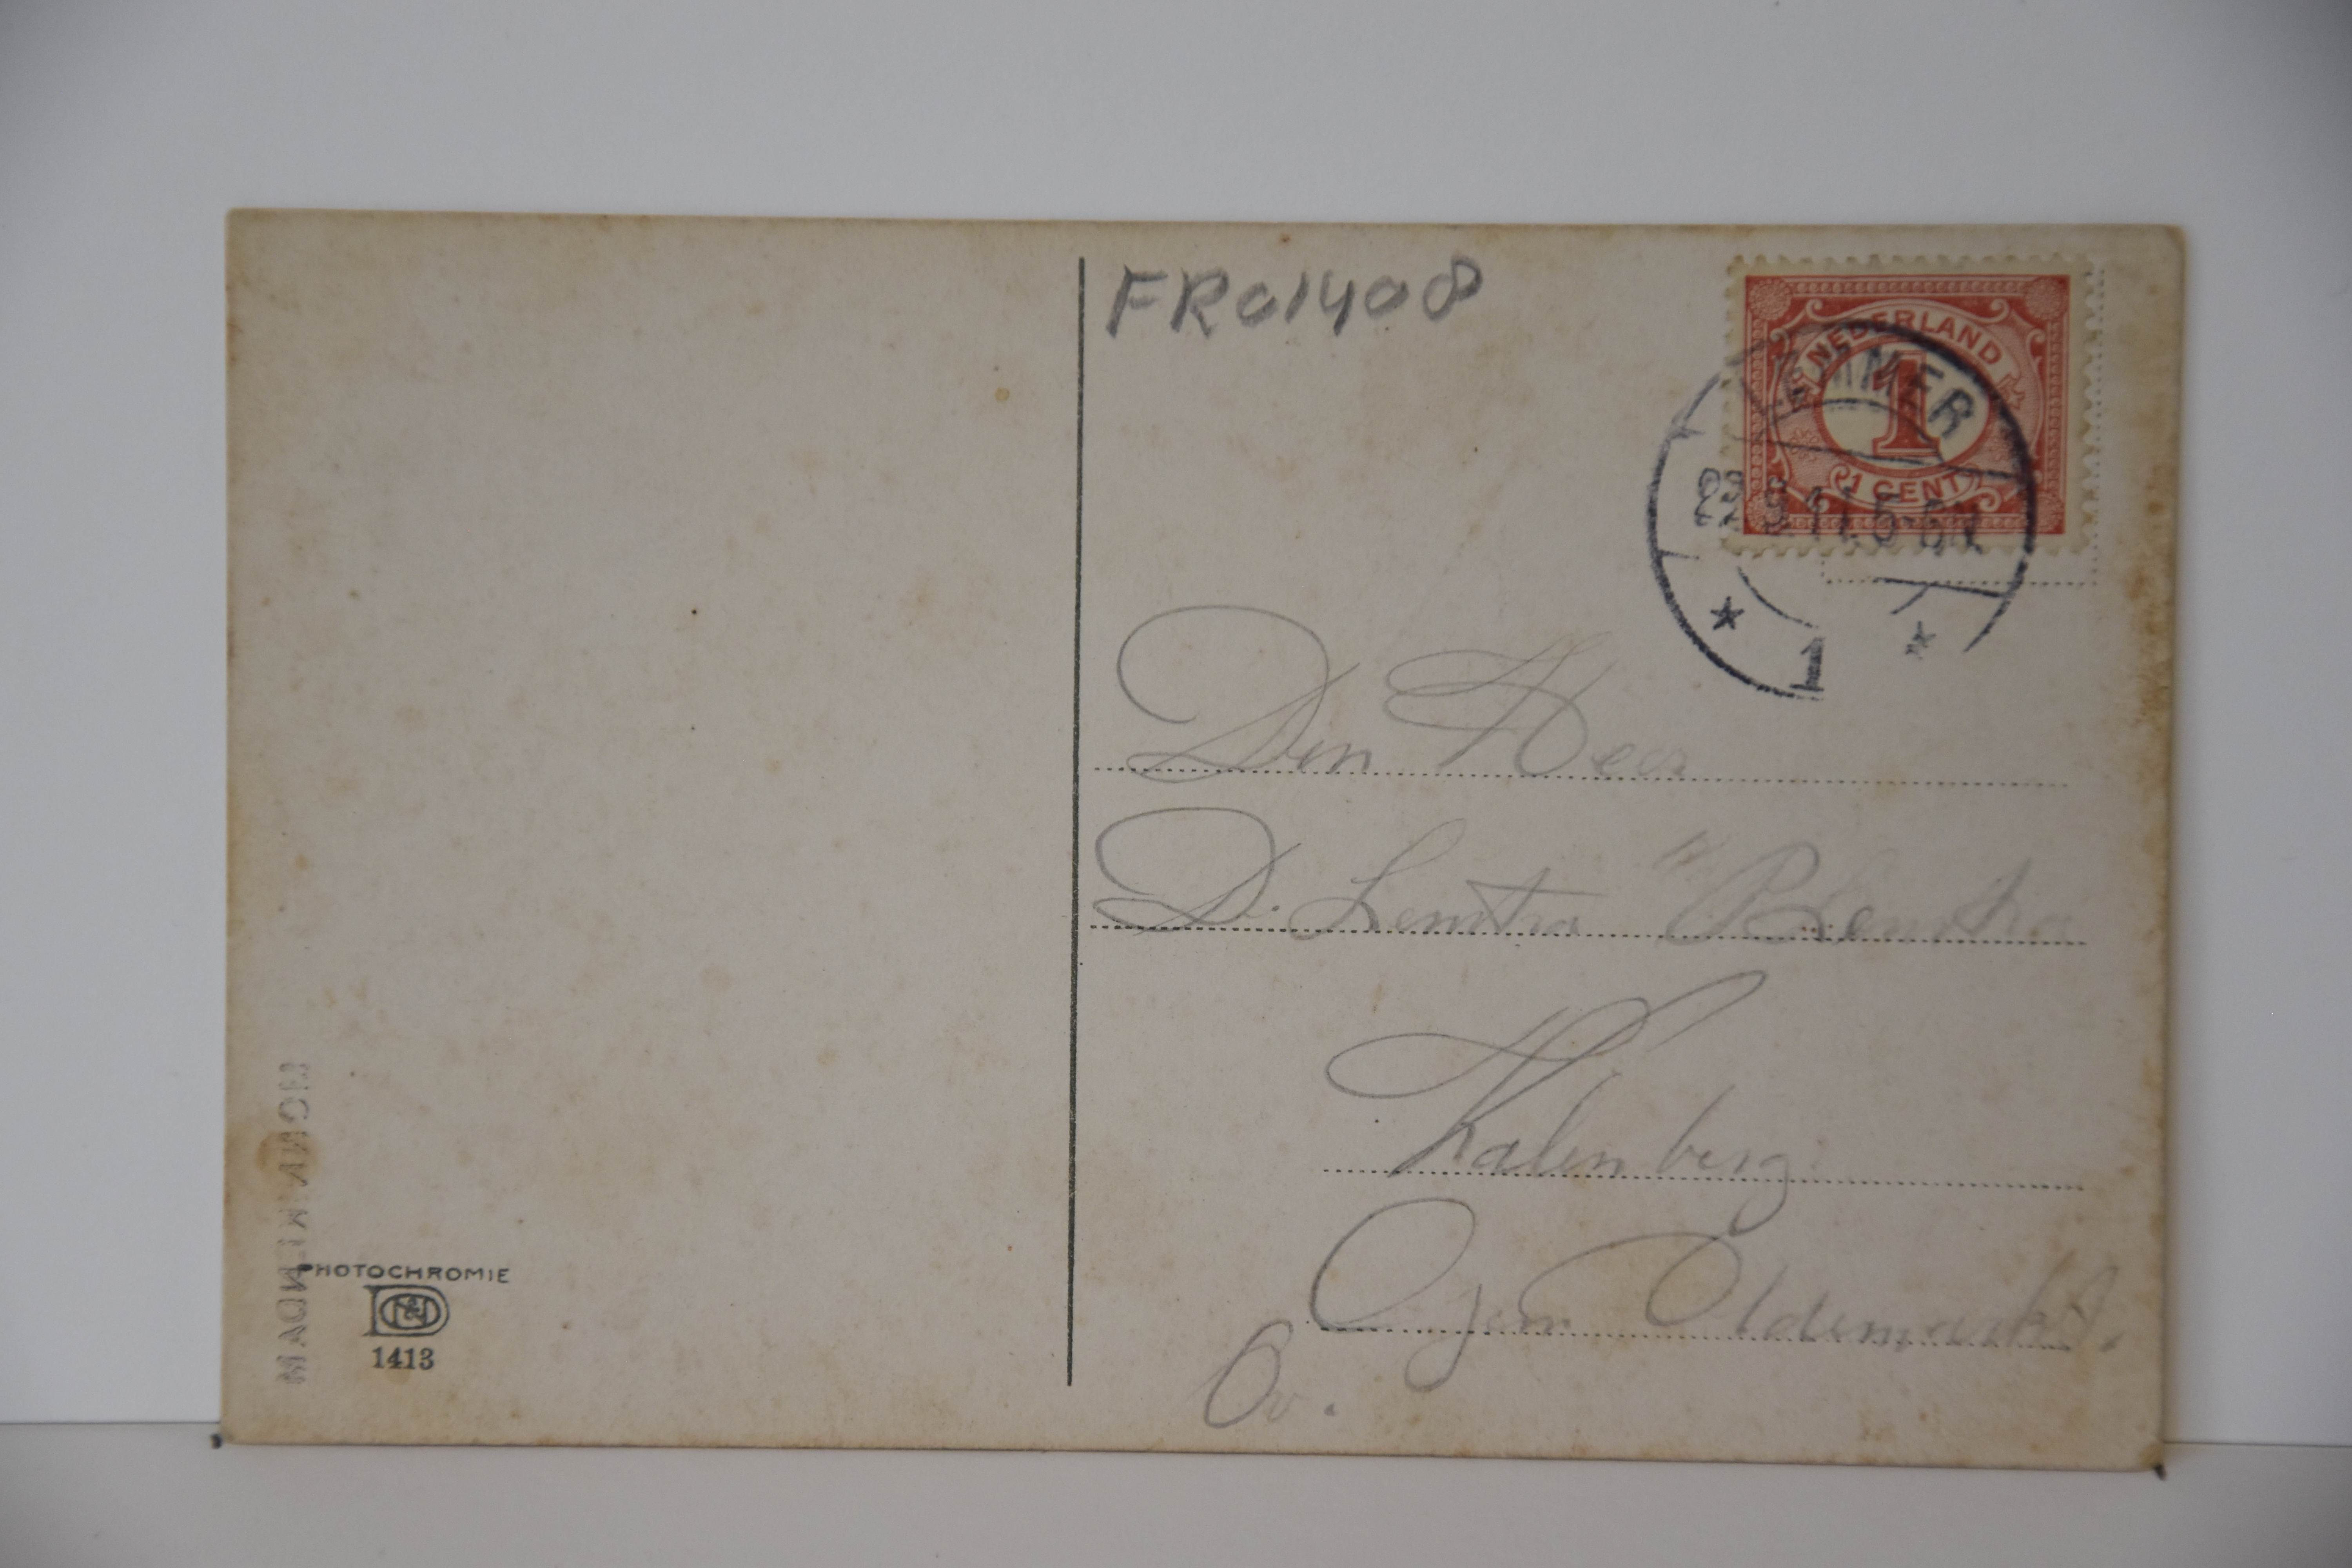 FR01408
NEDERLAND
1
1 CENT
LEMMER
22.9.11.5-6N.
1
Den Heer
D. Lemstra
Kalenberg
gem Oldemarkt.
Ov.
PHOTOCHROMIE
1413